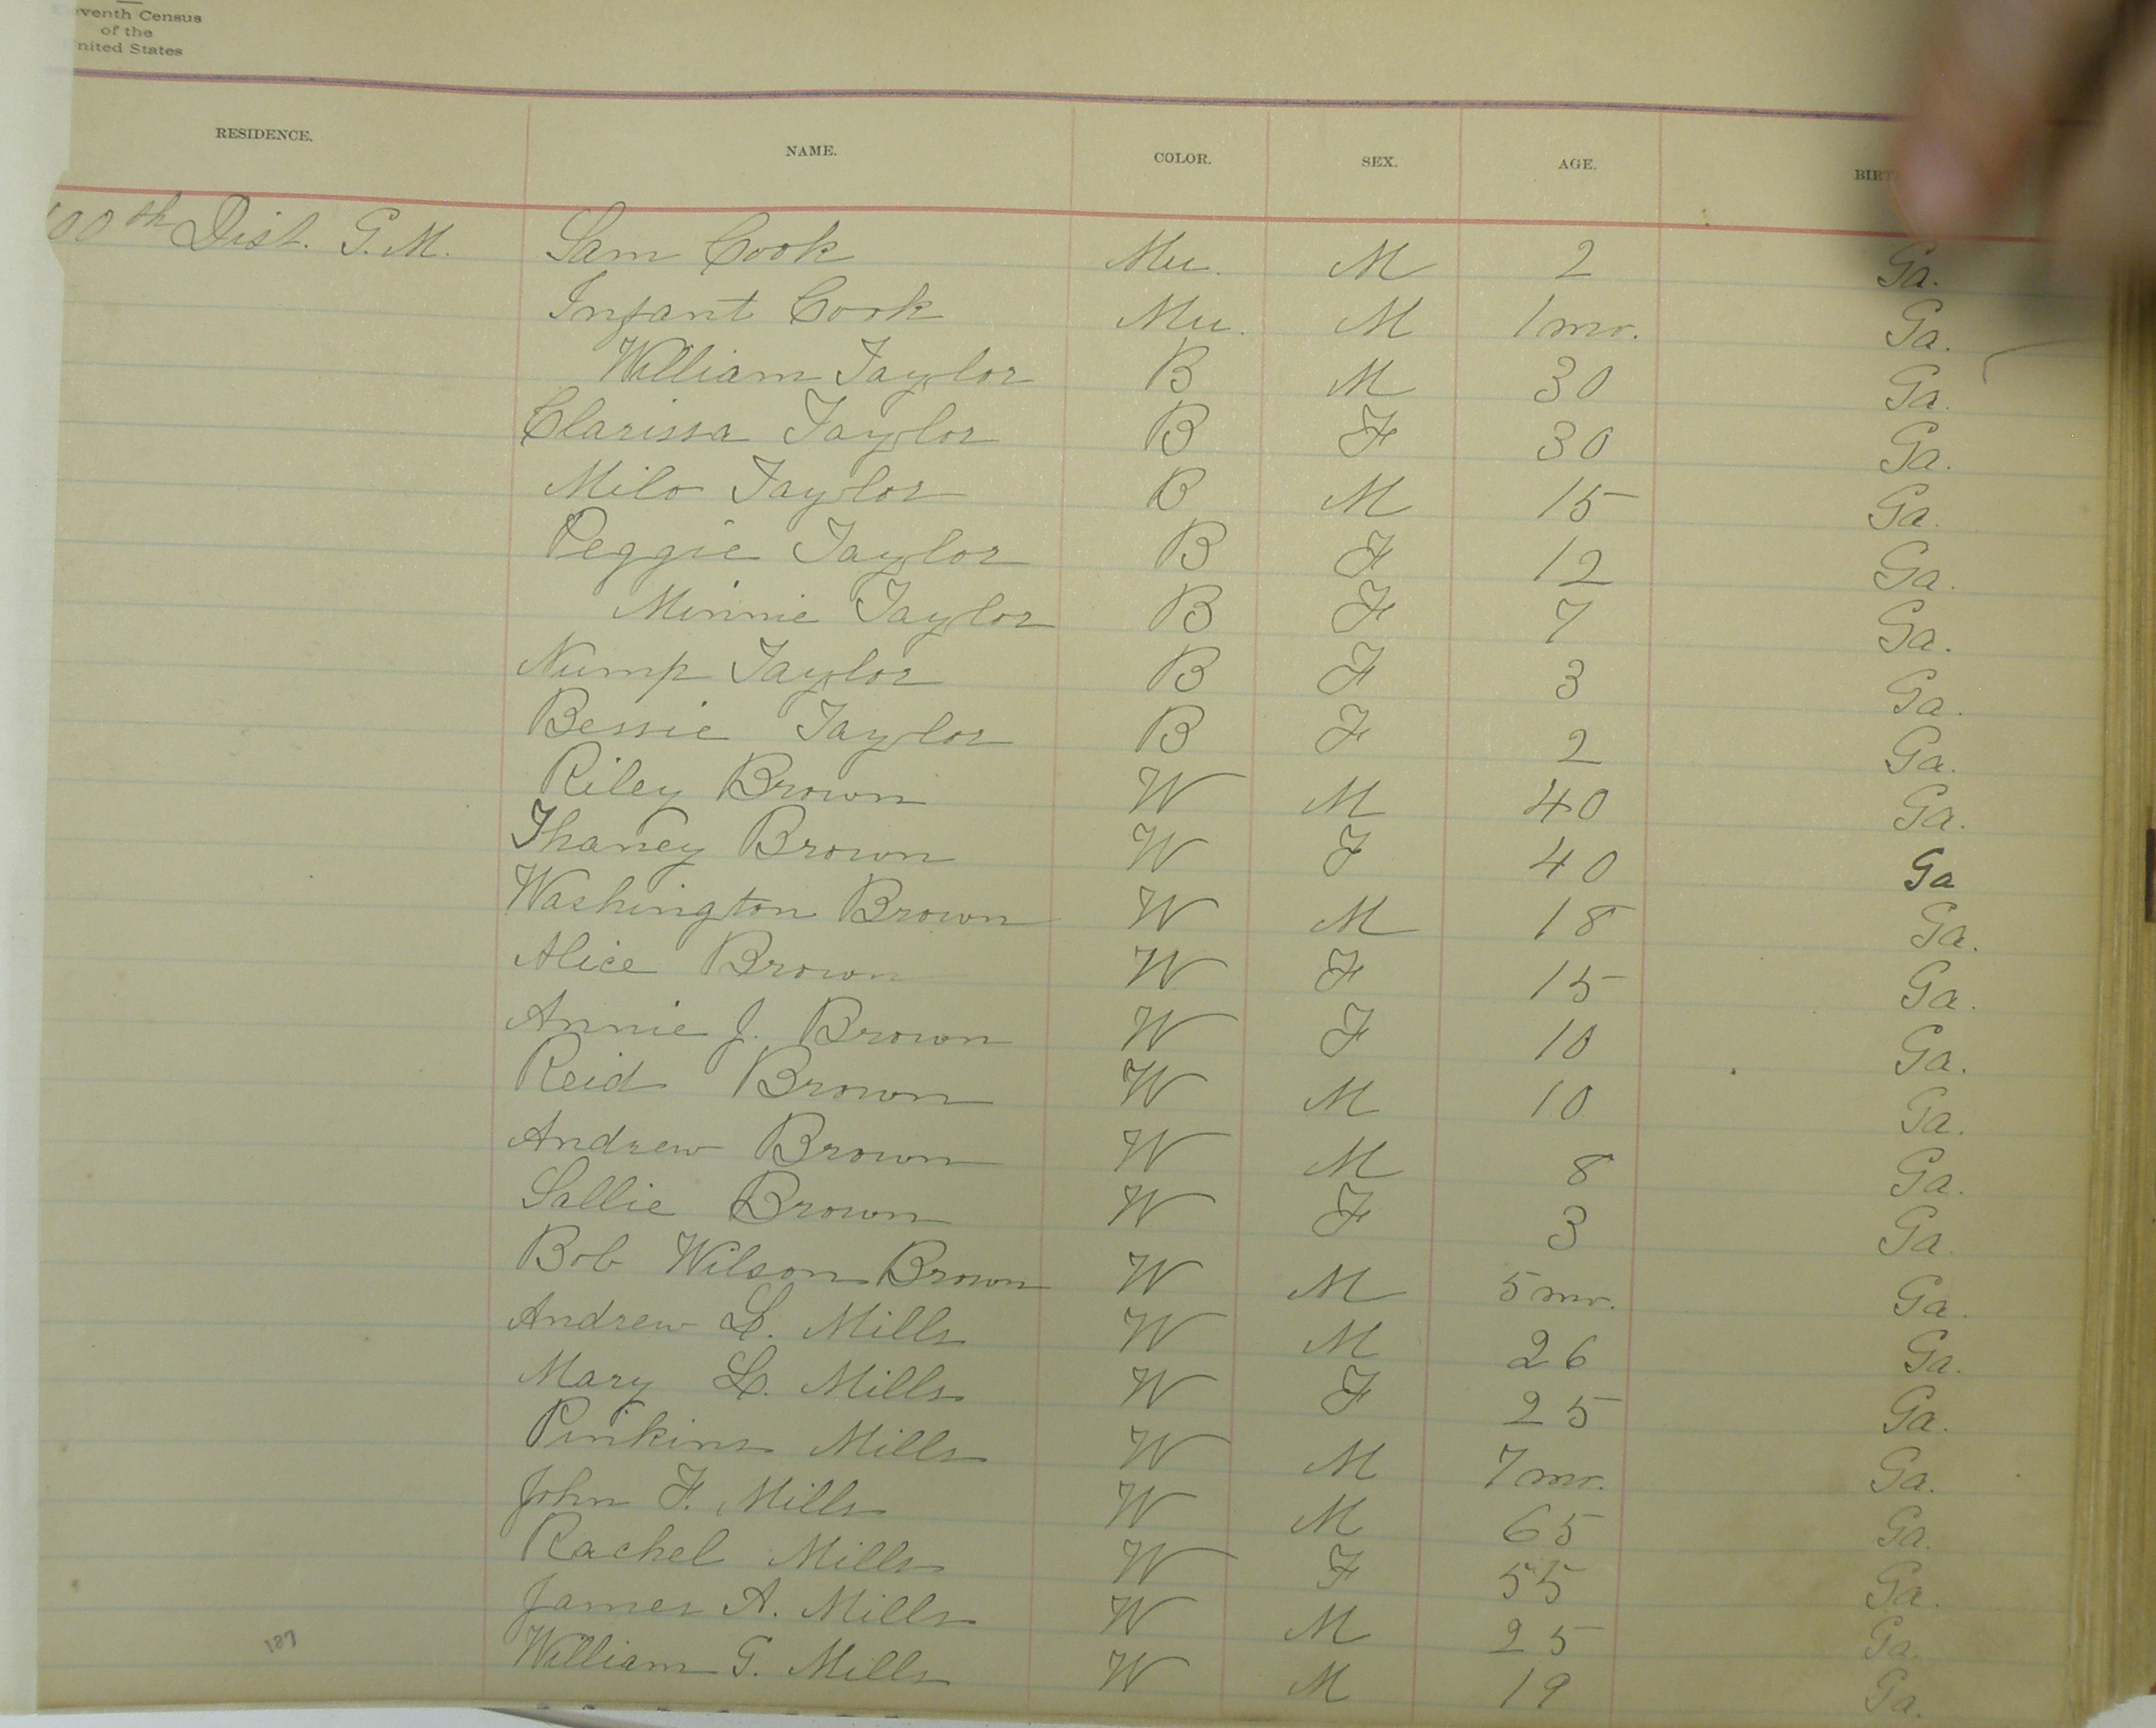 eventh Census
of the
nited States
RESIDENCE. NAME. COLOR. SEX. AGE. BIRT
00th Dist. G.M. Sam Cook Mu. M 2 Ga.
Infant Cook Mu. M 1 mo. Ga.
William Taylor B M 30 Ga.
Clarissa Taylor B F 30 Ga.
Milo Taylor B M 15 Ga.
Peggie Taylor B F 12 Ga.
Minnie Taylor B F 7 Ga.
Nump Taylor B F 3 Ga.
Bessie Taylor B F 2 Ga.
Riley Brown W M 40 Ga.
Thaney Brown W F 40 Ga
Washington Brown W M 18 Ga.
Alice Brown W F 15 Ga.
Annie J. Brown W F 10 Ga.
Reid Brown W M 10 Ga.
Andrew Brown W M 8 Ga.
Sallie Brown W F 3 Ga.
Bob Wilson Brown W M 5 mo. Ga.
Andrew L. Mills W M 26 Ga.
Mary L. Mills W F 25 Ga.
Pinkins Mills W M 7 mo. Ga.
John F. Mills W M 65 Ga.
Rachel Mills W F 55 Ga.
James A. Mills W M 25 Ga.
William G. Mills W M 19 Ga.
187